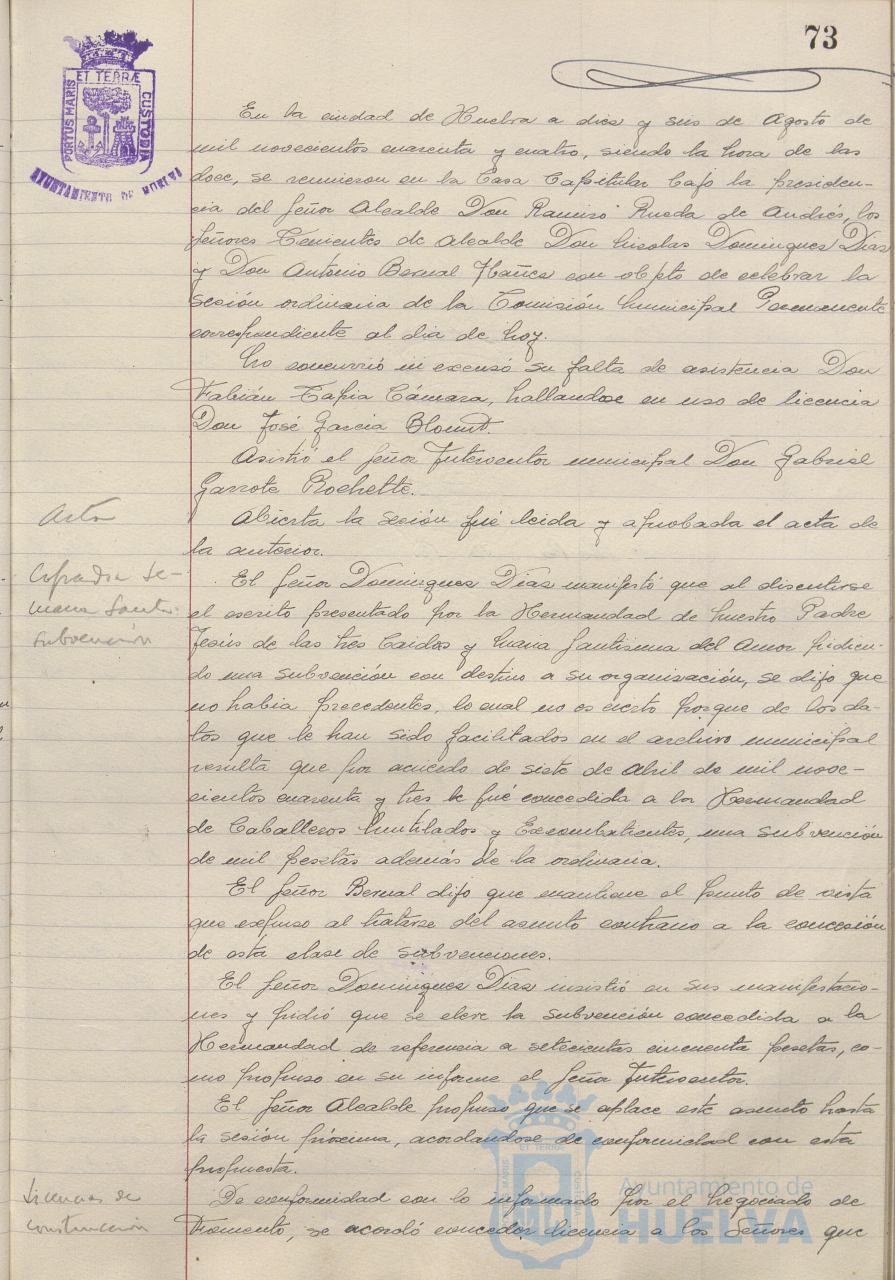 73
ET TERRÆ
PORTUS MARIS
CUSTODIA
AYUNTAMIENTO DE HUELVA
En la ciudad de Huelva a diez y seis de Agosto de
mil novecientos cuarenta y cuatro, siendo la hora de las
doce, se reunieron en la Casa Capitular bajo la presiden-
cia del Señor Alcalde Don Ramiro Rueda de Andrés, los
Señores Tenientes de Alcalde Don Nicolas Dominguez Diaz
y Don Antonio Bernal Ibañez con objeto de celebrar la
sesión ordinaria de la Comisión Municipal Permanente
correspondiente al dia de hoy.
No concurrió ni excusó su falta de asistencia Don
Fabián Tapia Cámara, hallandose en uso de licencia
Don José Garcia
Asistió el Señor Interventor municipal Don Gabriel
Garrote Rochette.
Acta
Abierta la sesión fué leida y aprobada el acta de
la anterior.
Cofradia Se-
mana Santa
subvención
El Señor Dominguez Diaz manifestó que al discutirse
el escrito presentado por la Hermandad de Nuestro Padre
Jesús de las tres Caidas y Maria Santisima del Amor pidien-
do una subvención con destino a su organización, se dijo que
no habia precedentes, lo cual no es cierto porque de los da-
tos que le han sido facilitados en el archivo municipal
resulta que por acuerdo de siete de Abril de mil nove-
cientos cuarenta y tres le fué concedida a la Hermandad
de Caballeros Mutilados y Excombatientes, una subvención
de mil pesetas además de la ordinaria.
El Señor Bernal dijo que mantiene el punto de vista
que expuso al tratarse del asunto contrario a la concesión
de esta clase de subvenciones.
El Señor Dominguez Diaz insistió en sus manifestacio-
nes y pidió que se eleve la subvención concedida a la
Hermandad de referencia a setecientas cincuenta pesetas, co-
mo propuso en su informe el Señor Interventor.
El Señor Alcalde propuso que se aplace este asunto hasta
la sesión próxima, acordandose de conformidad con esta
propuesta.
Licencias de
construcción
De conformidad con lo informado por el Negociado de
Fomento, se acordó conceder licencia a los Señores que
Ayuntamiento de
HUELVA